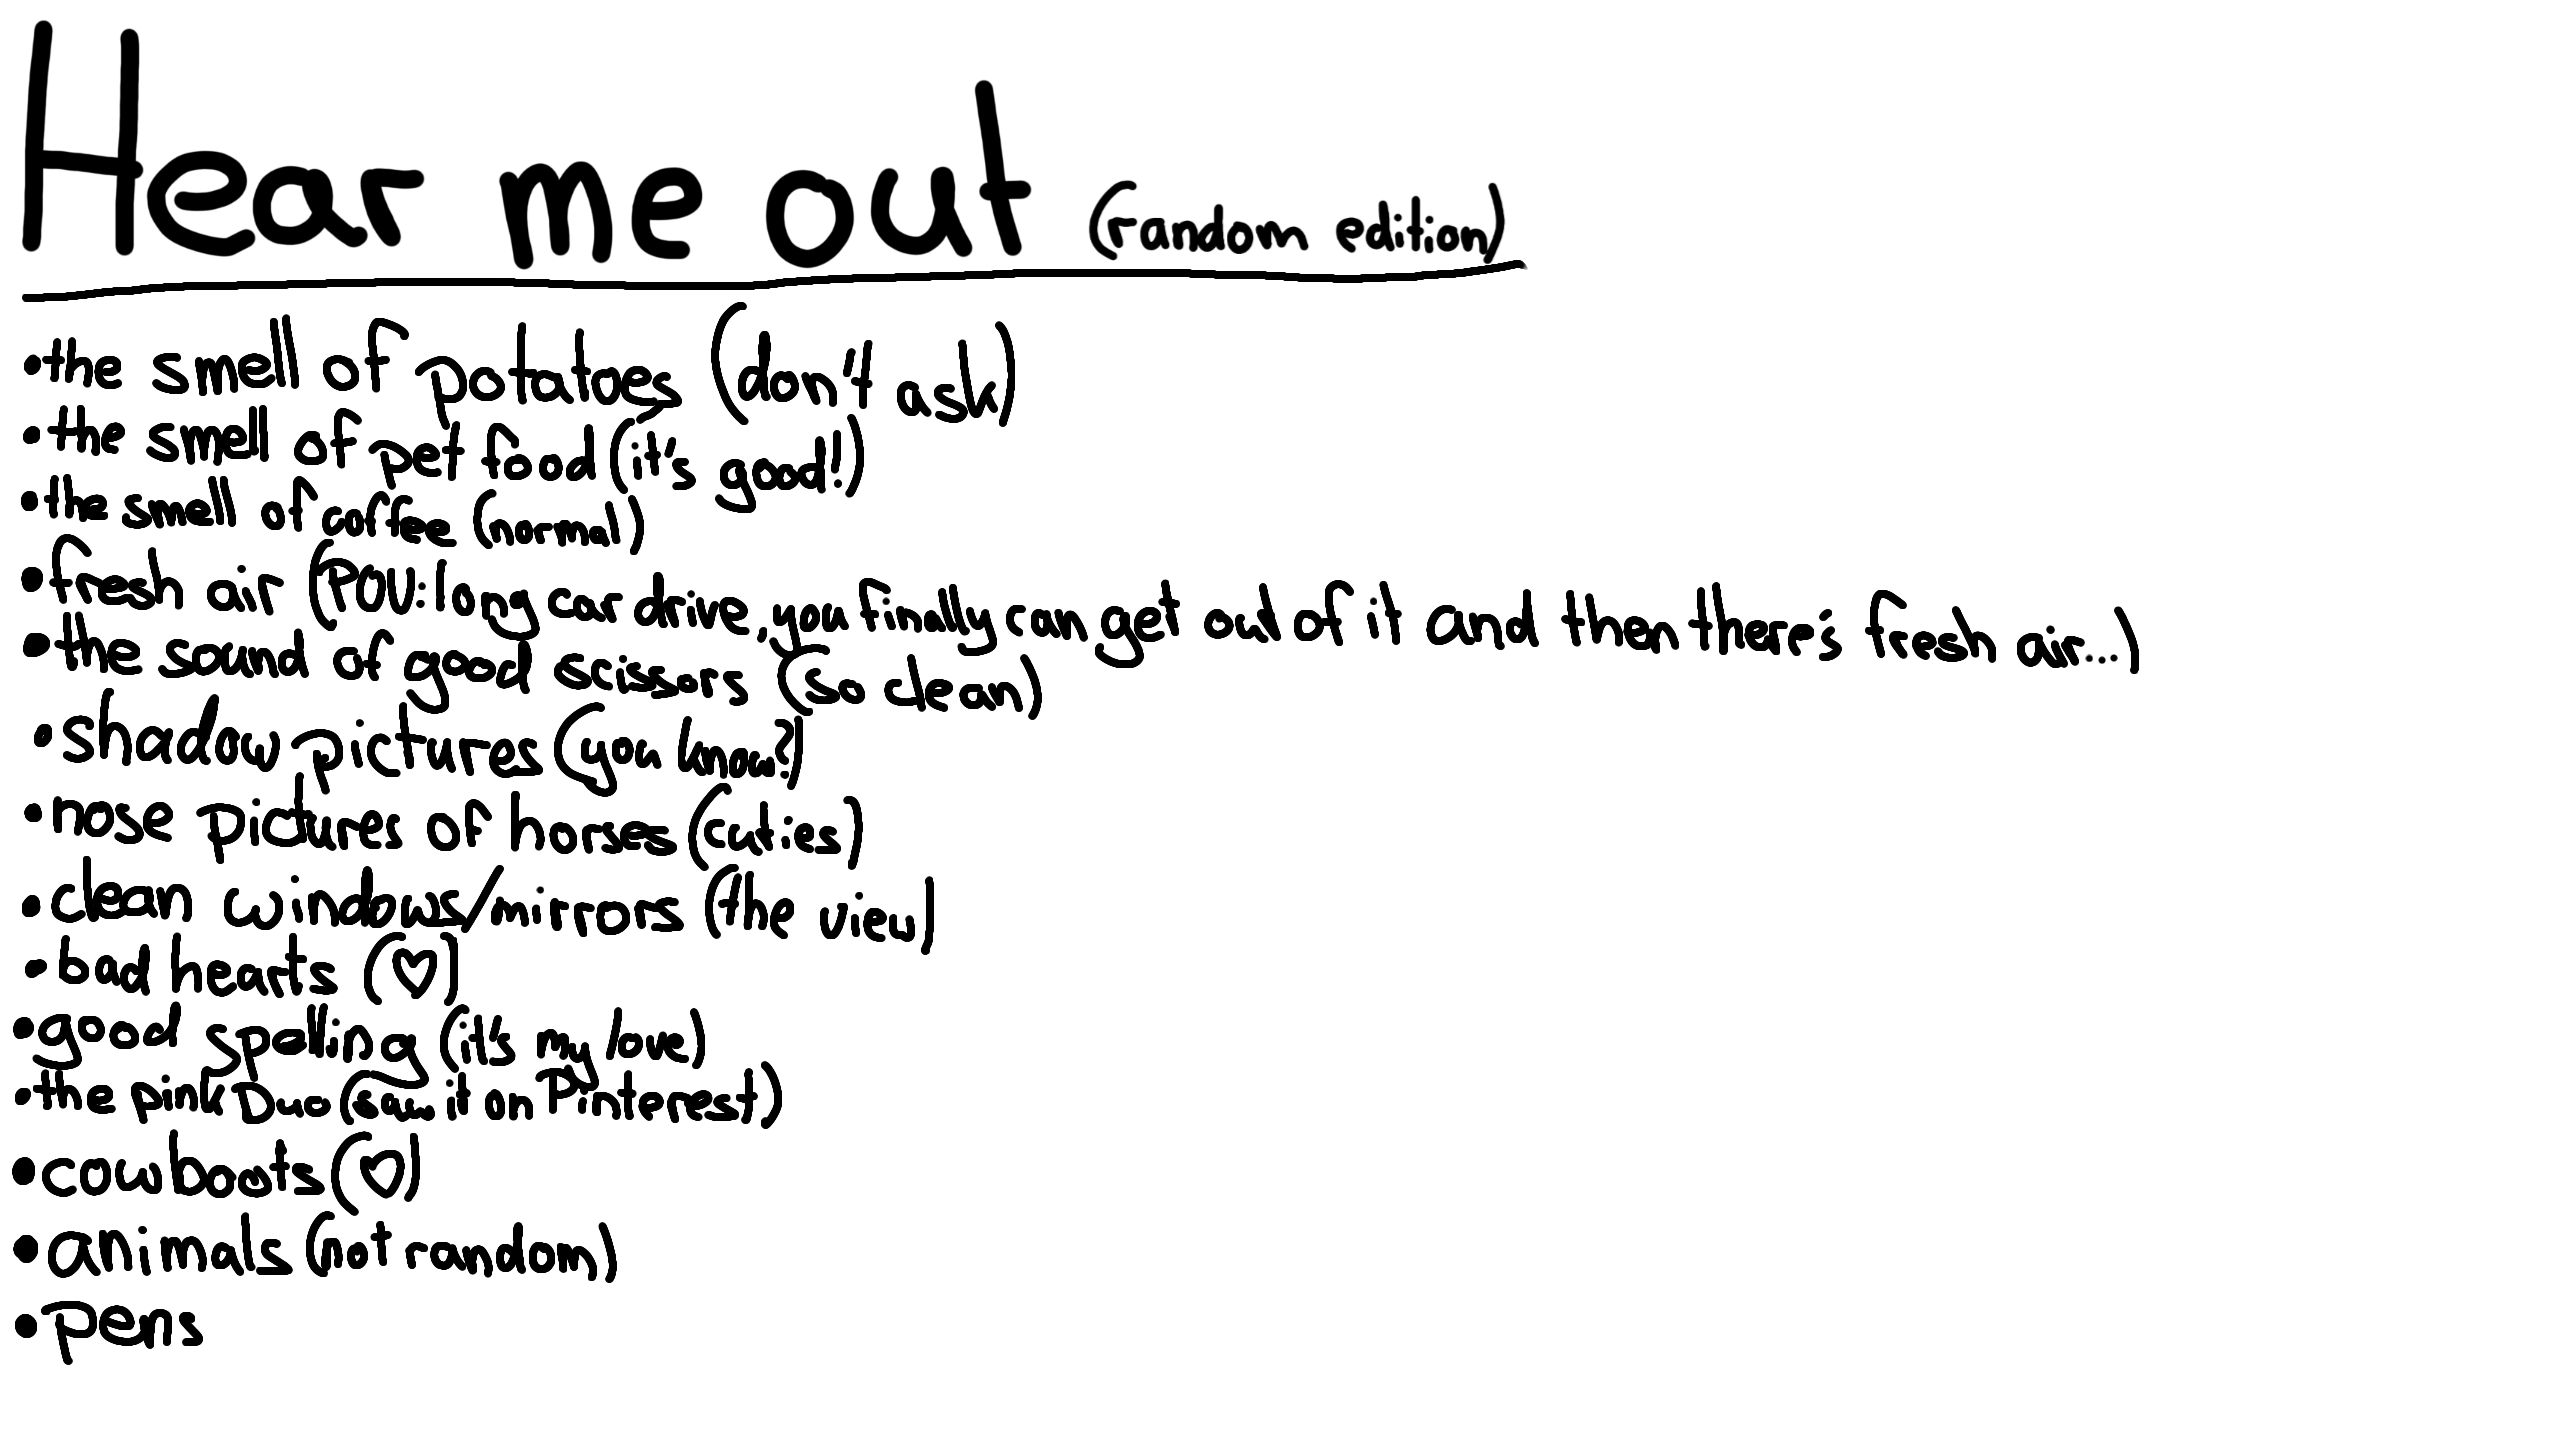 Hear me out (random edition)
•the smell of potatoes (don't ask)
•the smell of pet food (it's good!)
•the smell of coffee (normal)
•fresh air (POV: long car drive, you finally can get out of it and then there's fresh air...)
•the sound of good scissors (so clean)
•shadow pictures (you know?)
•nose pictures of horses (cuties)
•clean windows/mirrors (the view)
•bad hearts (♡)
•good spelling (it's my love)
•the pink Duo (saw it on Pinterest)
•cowboots (♡)
•animals (not random)
•pens